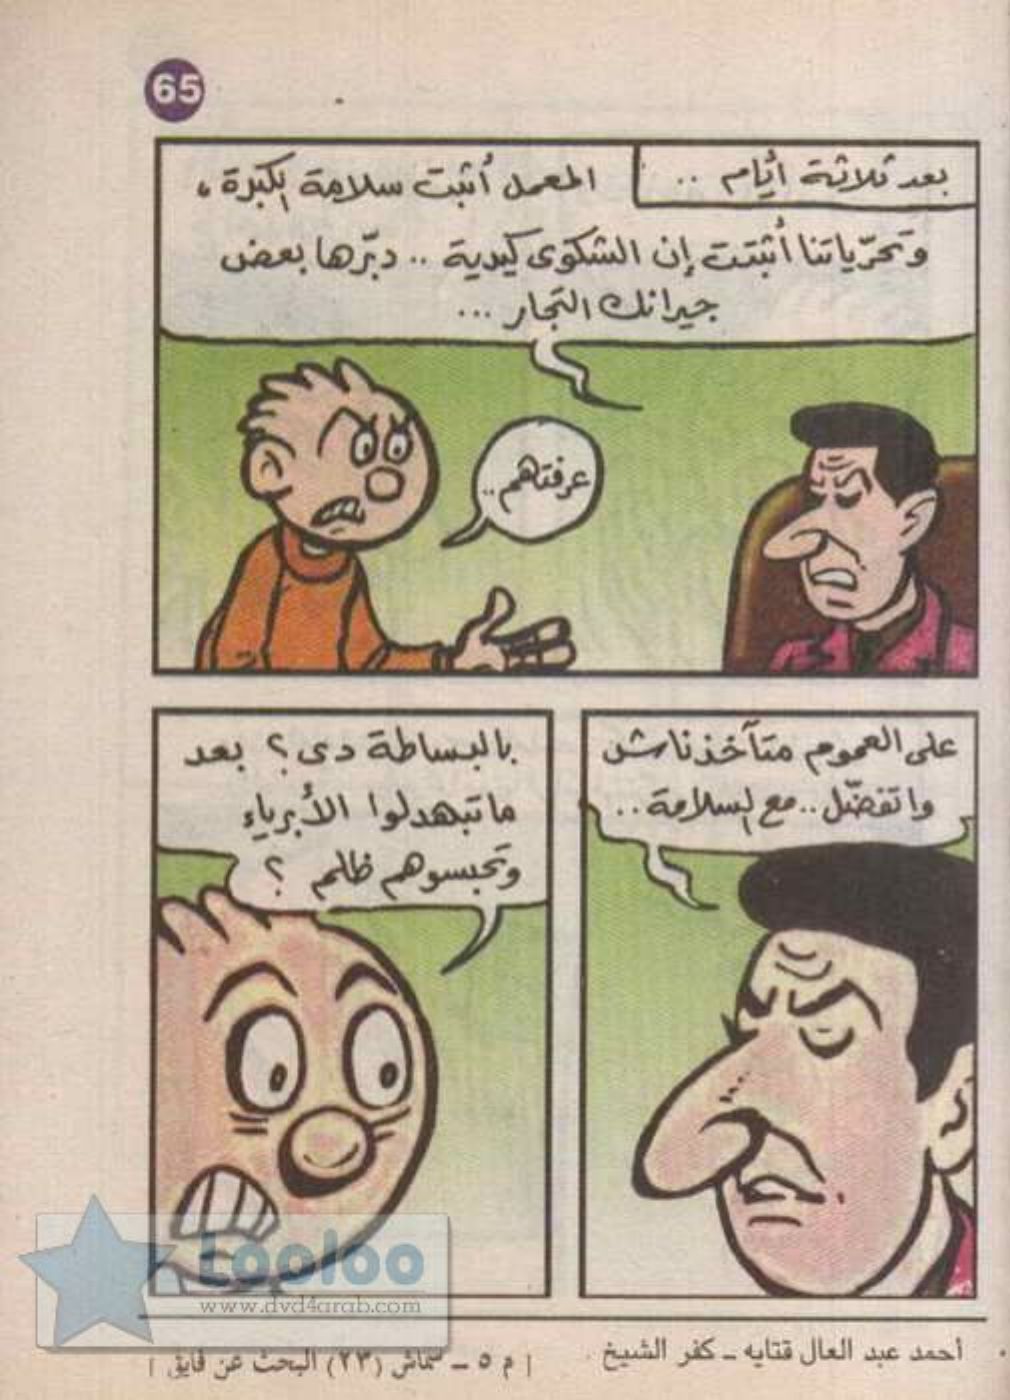 65
بعد ثلاثة أيّام ..
المعمل أثبت سلامة الكبّرة ،
وتحرّياتنا أثبتت إن الشكوى كيدية .. دبّرها بعض
جيرانك التجّار ...
عرفتاهم..
على العموم متآخذناش
واتفضّل .. مع السلامة ..
بالبساطة دى ؟ بعد
ماتبهدلوا الأبرياء
وتحبسوهم ظلم ؟
Looloo
www.dvd4arab.com
أحمد عبد العال قتايه ـ كفر الشيخ
| م ٥ ـ سماش (٢٣) البحث عن فايق |